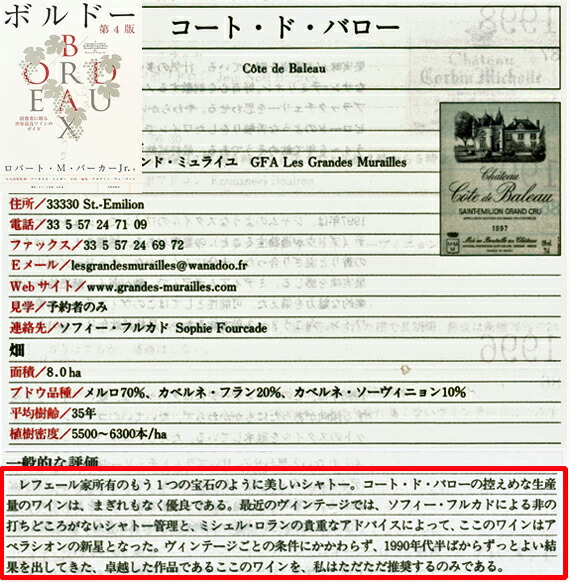 ボルドー
第4版
BORDEAUX
消費者に贈る
ガイド
ロバート・M・パーカーJr.
コート・ド・バロー
Côte de Baleau
ンド・ミュライユ GFA Les Grandes Murailles
Château
Côte de Baleau
SAINT-EMILION GRAND CRU
1997
Mis en Bouteille au Château
住所／33330 St.-Emilion
電話／33 5 57 24 71 09
ファックス／33 5 57 24 69 72
Eメール／lesgrandesmurailles@wanadoo.fr
Webサイト／www.grandes-murailles.com
見学／予約者のみ
連絡先／ソフィー・フルカド Sophie Fourcade
畑
面積／8.0ha
ブドウ品種／メルロ70%、カベルネ・フラン20%、カベルネ・ソーヴィニョン10%
平均樹齢／35年
植樹密度／5500～6300本/ha
一般的な評価
レフェール家所有のもう1つの宝石のように美しいシャトー。コート・ド・バローの控えめな生産
量のワインは、まぎれもなく優良である。最近のヴィンテージでは、ソフィー・フルカドによる非の
打ちどころがないシャトー管理と、ミシェル・ロランの貴重なアドバイスによって、ここのワインはア
ペラシオンの新星となった。ヴィンテージごとの条件にかかわらず、1990年代半ばからずっとよい結
果を出してきた、卓越した作品であるここのワインを、私はただただ推奨するのみである。